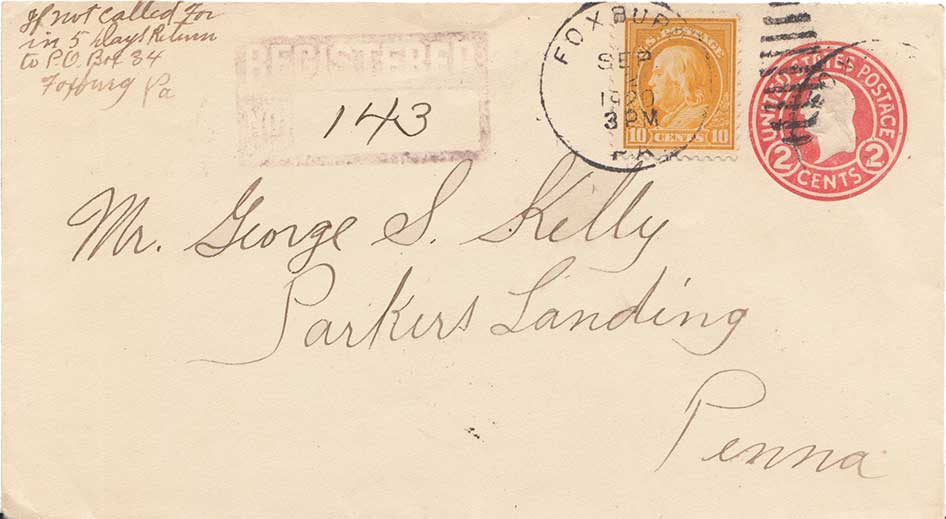 If not called for
in 5 days Return
to P.O. Box 34
Foxburg Pa
REGISTERED
NO.
143
FOXBUR
SEP
1920
3 PM
PA
U.S. POSTAGE
10 CENTS 10
UNITED STATES POSTAGE
2 CENTS 2
Mr. George S. Kelly
Parkers Landing
Penna